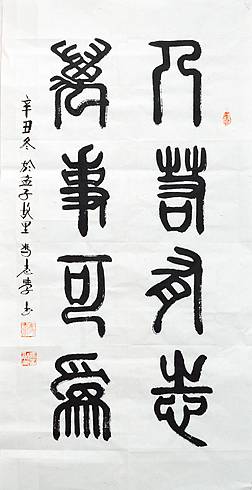 乃若有志
萬事可為
辛丑冬於孟子故里